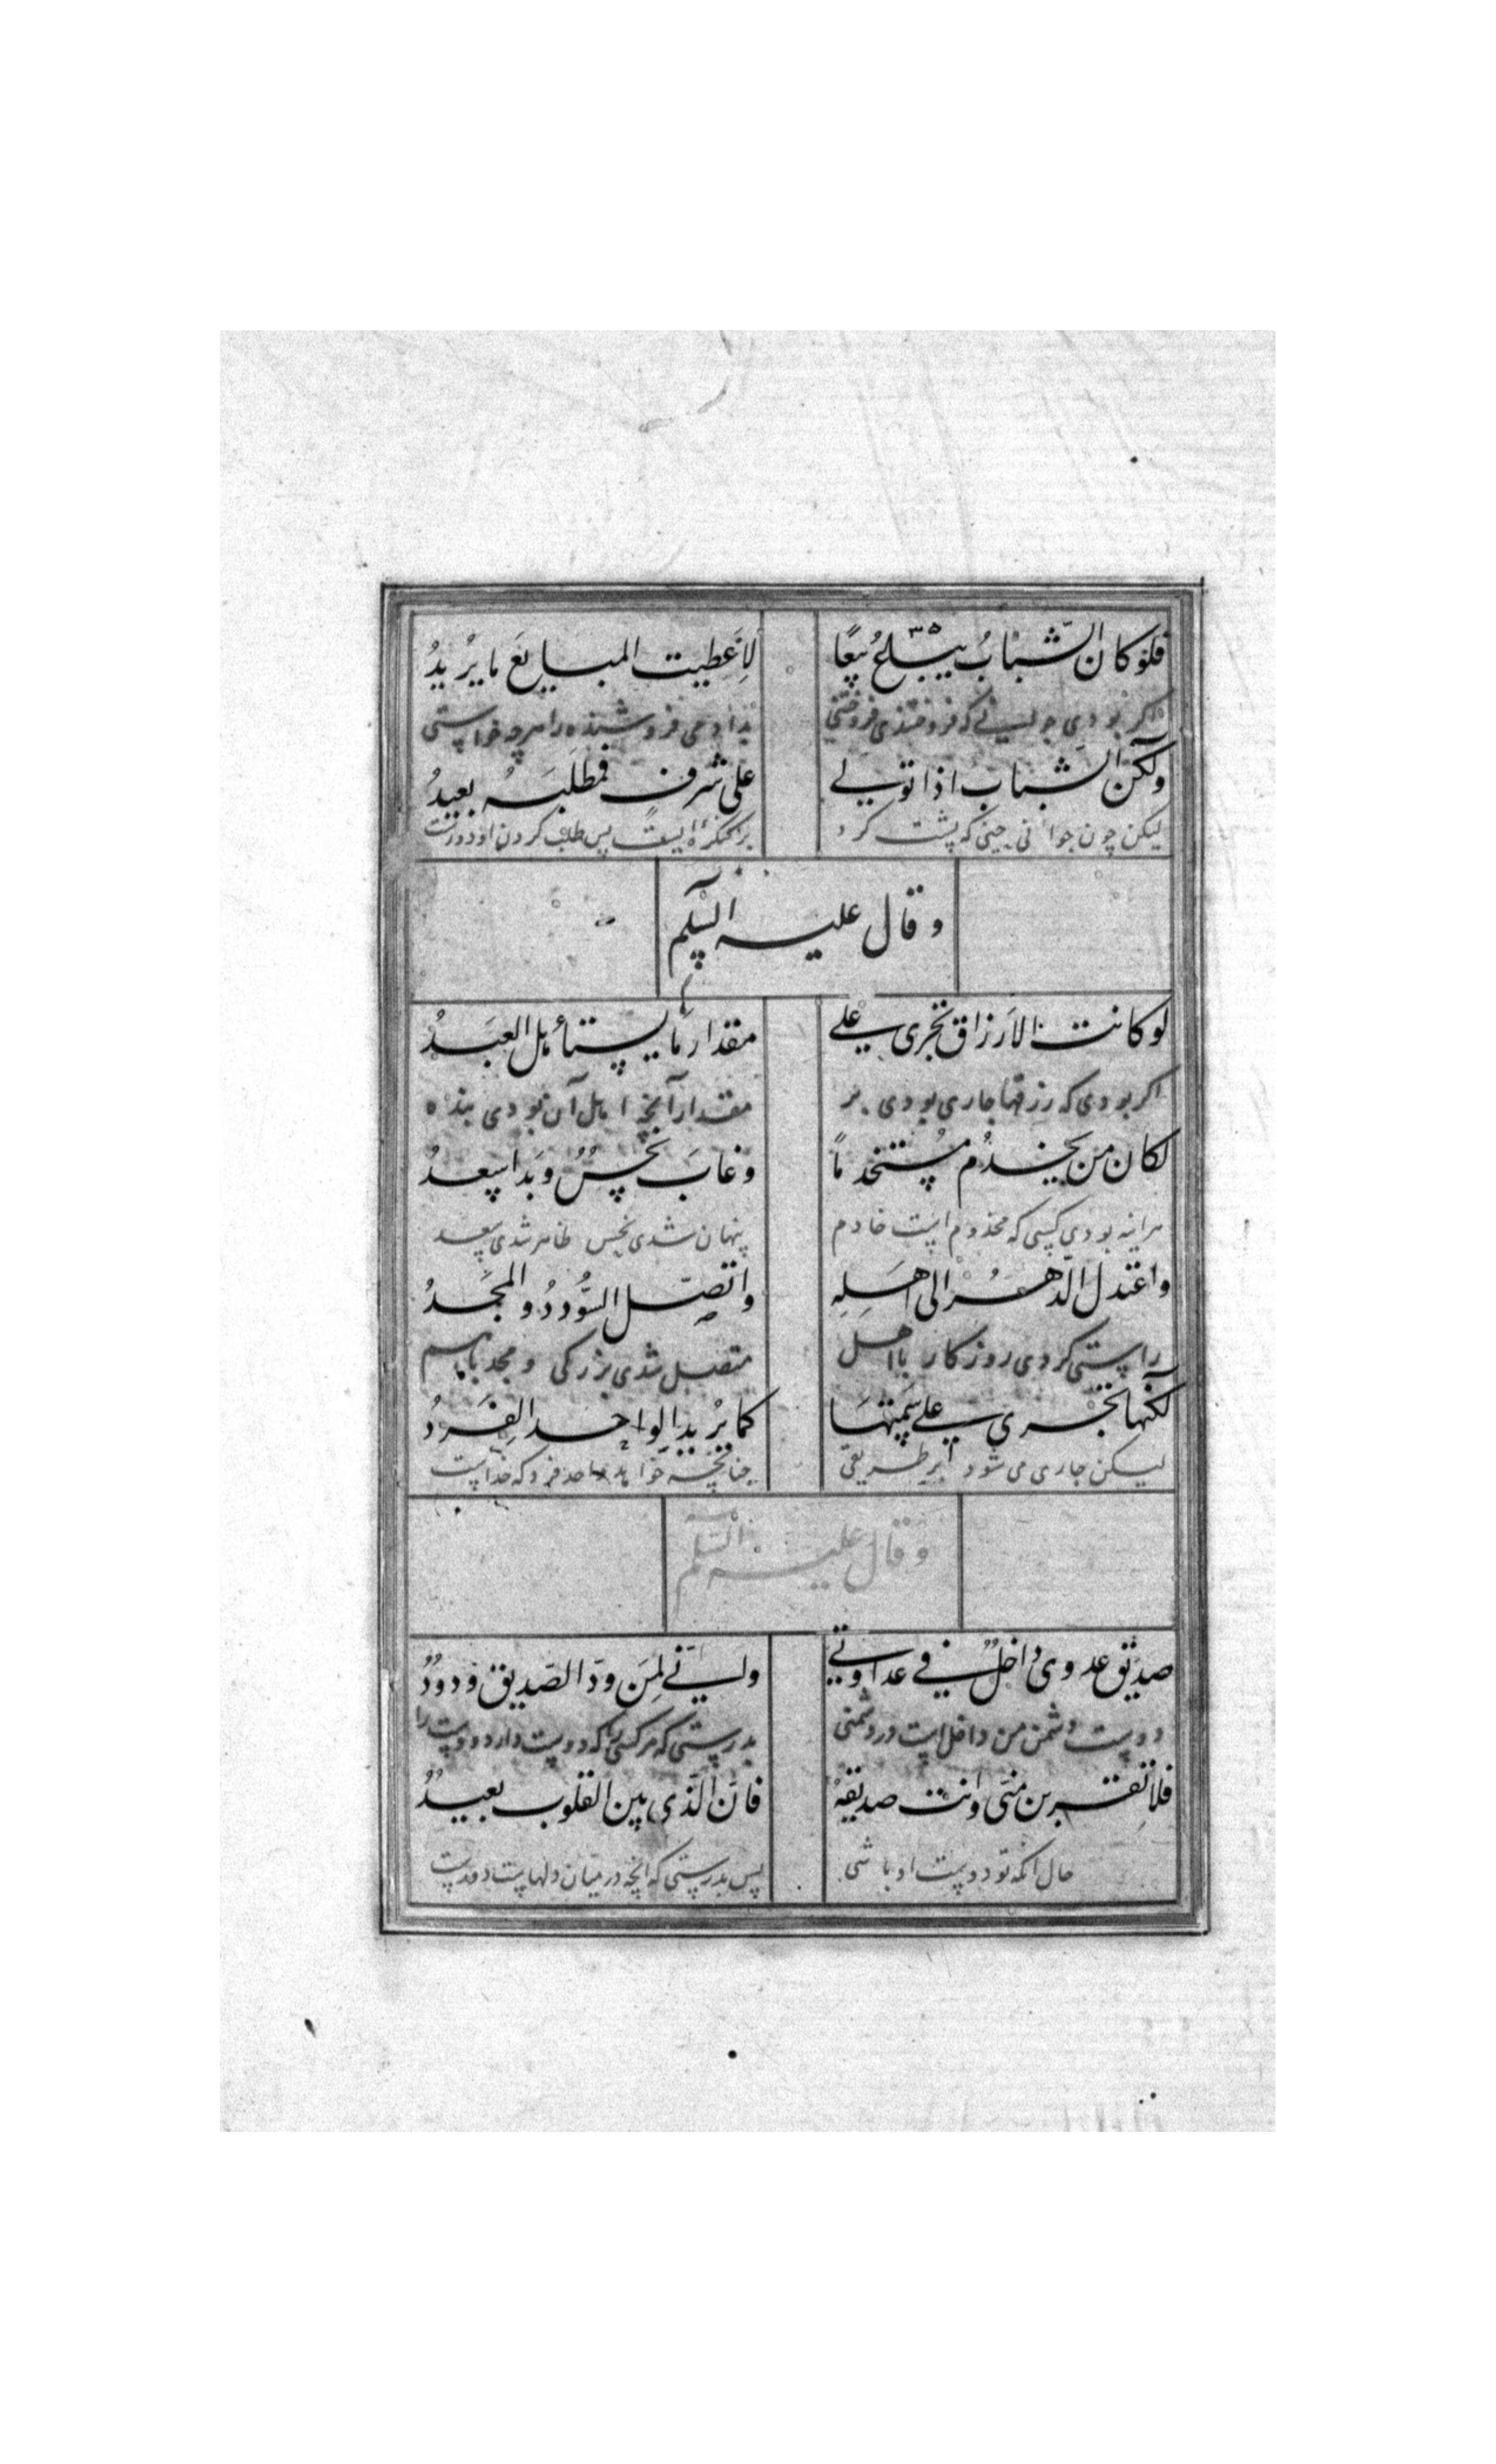 فلو كان الشّبابُ يبَاعُ بيعًا لَاَعطيت المبايعَ ما يرُيدُ
اكر بودى جوانيى كه فروختندى فروختنى بدادمى فروشنده را هرچه خواستى
ولكن الشباب اذا تولى على شرف فمطلبَهُ بعيدُ
ليكن چون جوانى چينى كه پشت كرد بر كنكرهٔ ايست پس طلب كردن او دورست
وقال عليه السلم
لو كانت الارزاق تجرى على مقدار ما يستأهل العبَدُ
اكر بودى كه رزقها جارى بودى بر مقدار آنچه اهل آن بودى بنده
لكان من يخدُم مستخدماً وغابَ نحسٌ وبَدا سعدُ
هراينه بودى كسى كه مخدوم است خادم پنهان شدى نحس ظاهر شدى سعد
واعتدل الدّهرُ الى اهلِهِ واتصّل السُّوددُ والمجَدُ
راستى كردى روزكار با اهل متصل شدى بزركى و مجد باسم
لكنها تجرى على سَمتهَا كما يرُيد الواحد الفرَدُ
ليكن جارى مى شود بر طريقى چنانچه خواهد واحد فرد كه خداست
وقال عليه السّلم
صديق عدوى داخلٌ فى عداوتى وانى لِمَن ودّ الصّديق ودودُ
دوست دشمن من داخل است در دشمنى بدرستى كه هر كسى را كه دوست دارد دوست را
فلا تقربن منّى وانت صديقهُ فانّ الّذى بين القلوب بعيدُ
حال انكه تو دوست او باشى پس بدرستى كه انچه در ميان دلهاست دورست